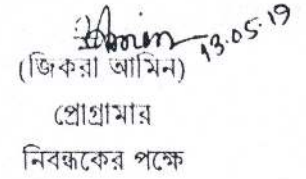 13.05.19
(জিকরা আমিন)
প্রোগ্রামার
নিবন্ধকের পক্ষে